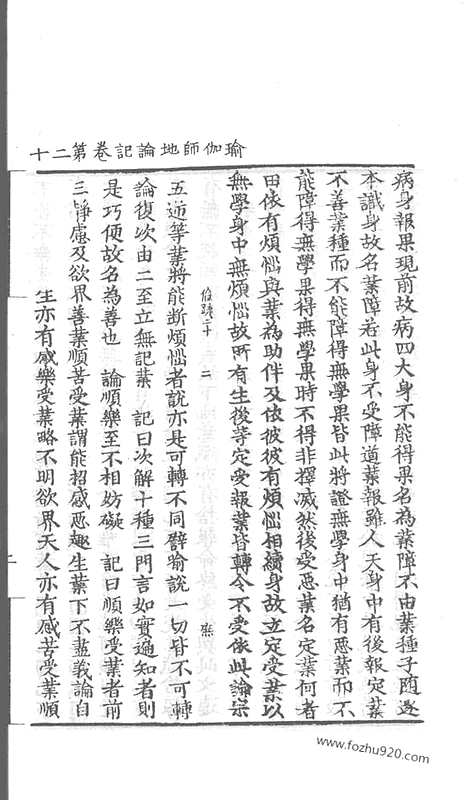 瑜伽師地論記卷第二十
病身報果現前故病四大身不能得果名為業障不由業種子隨逐
本識身故名業障若此身不受障道業報雖人天身中有後報定業
不善業種而不能障得無學果皆此將證無學身中猶有惡業而不
能障得無學果得無學果時不得非擇滅然後受惡業名定業何者
田依有煩惱與業為助伴及依彼彼有煩惱相續身故立定受業以
無學身中無煩惱故所有生後等定受報業皆轉令不受依此論宗
二
五逆等業將能斷煩惱者說亦是可轉不同譬喻說一切皆不可轉
論復次由二至立無記業 記曰次解十種三門言如實遍知者則
是巧便故名為善也 論順樂至不相妨礙 記曰順樂受業者前
三靜慮及欲界善業順苦受業謂能招感惡趣生業下不盡義論自
生亦有感樂受業略不明欲界天人亦有感苦受業順
www.fozhu920.com